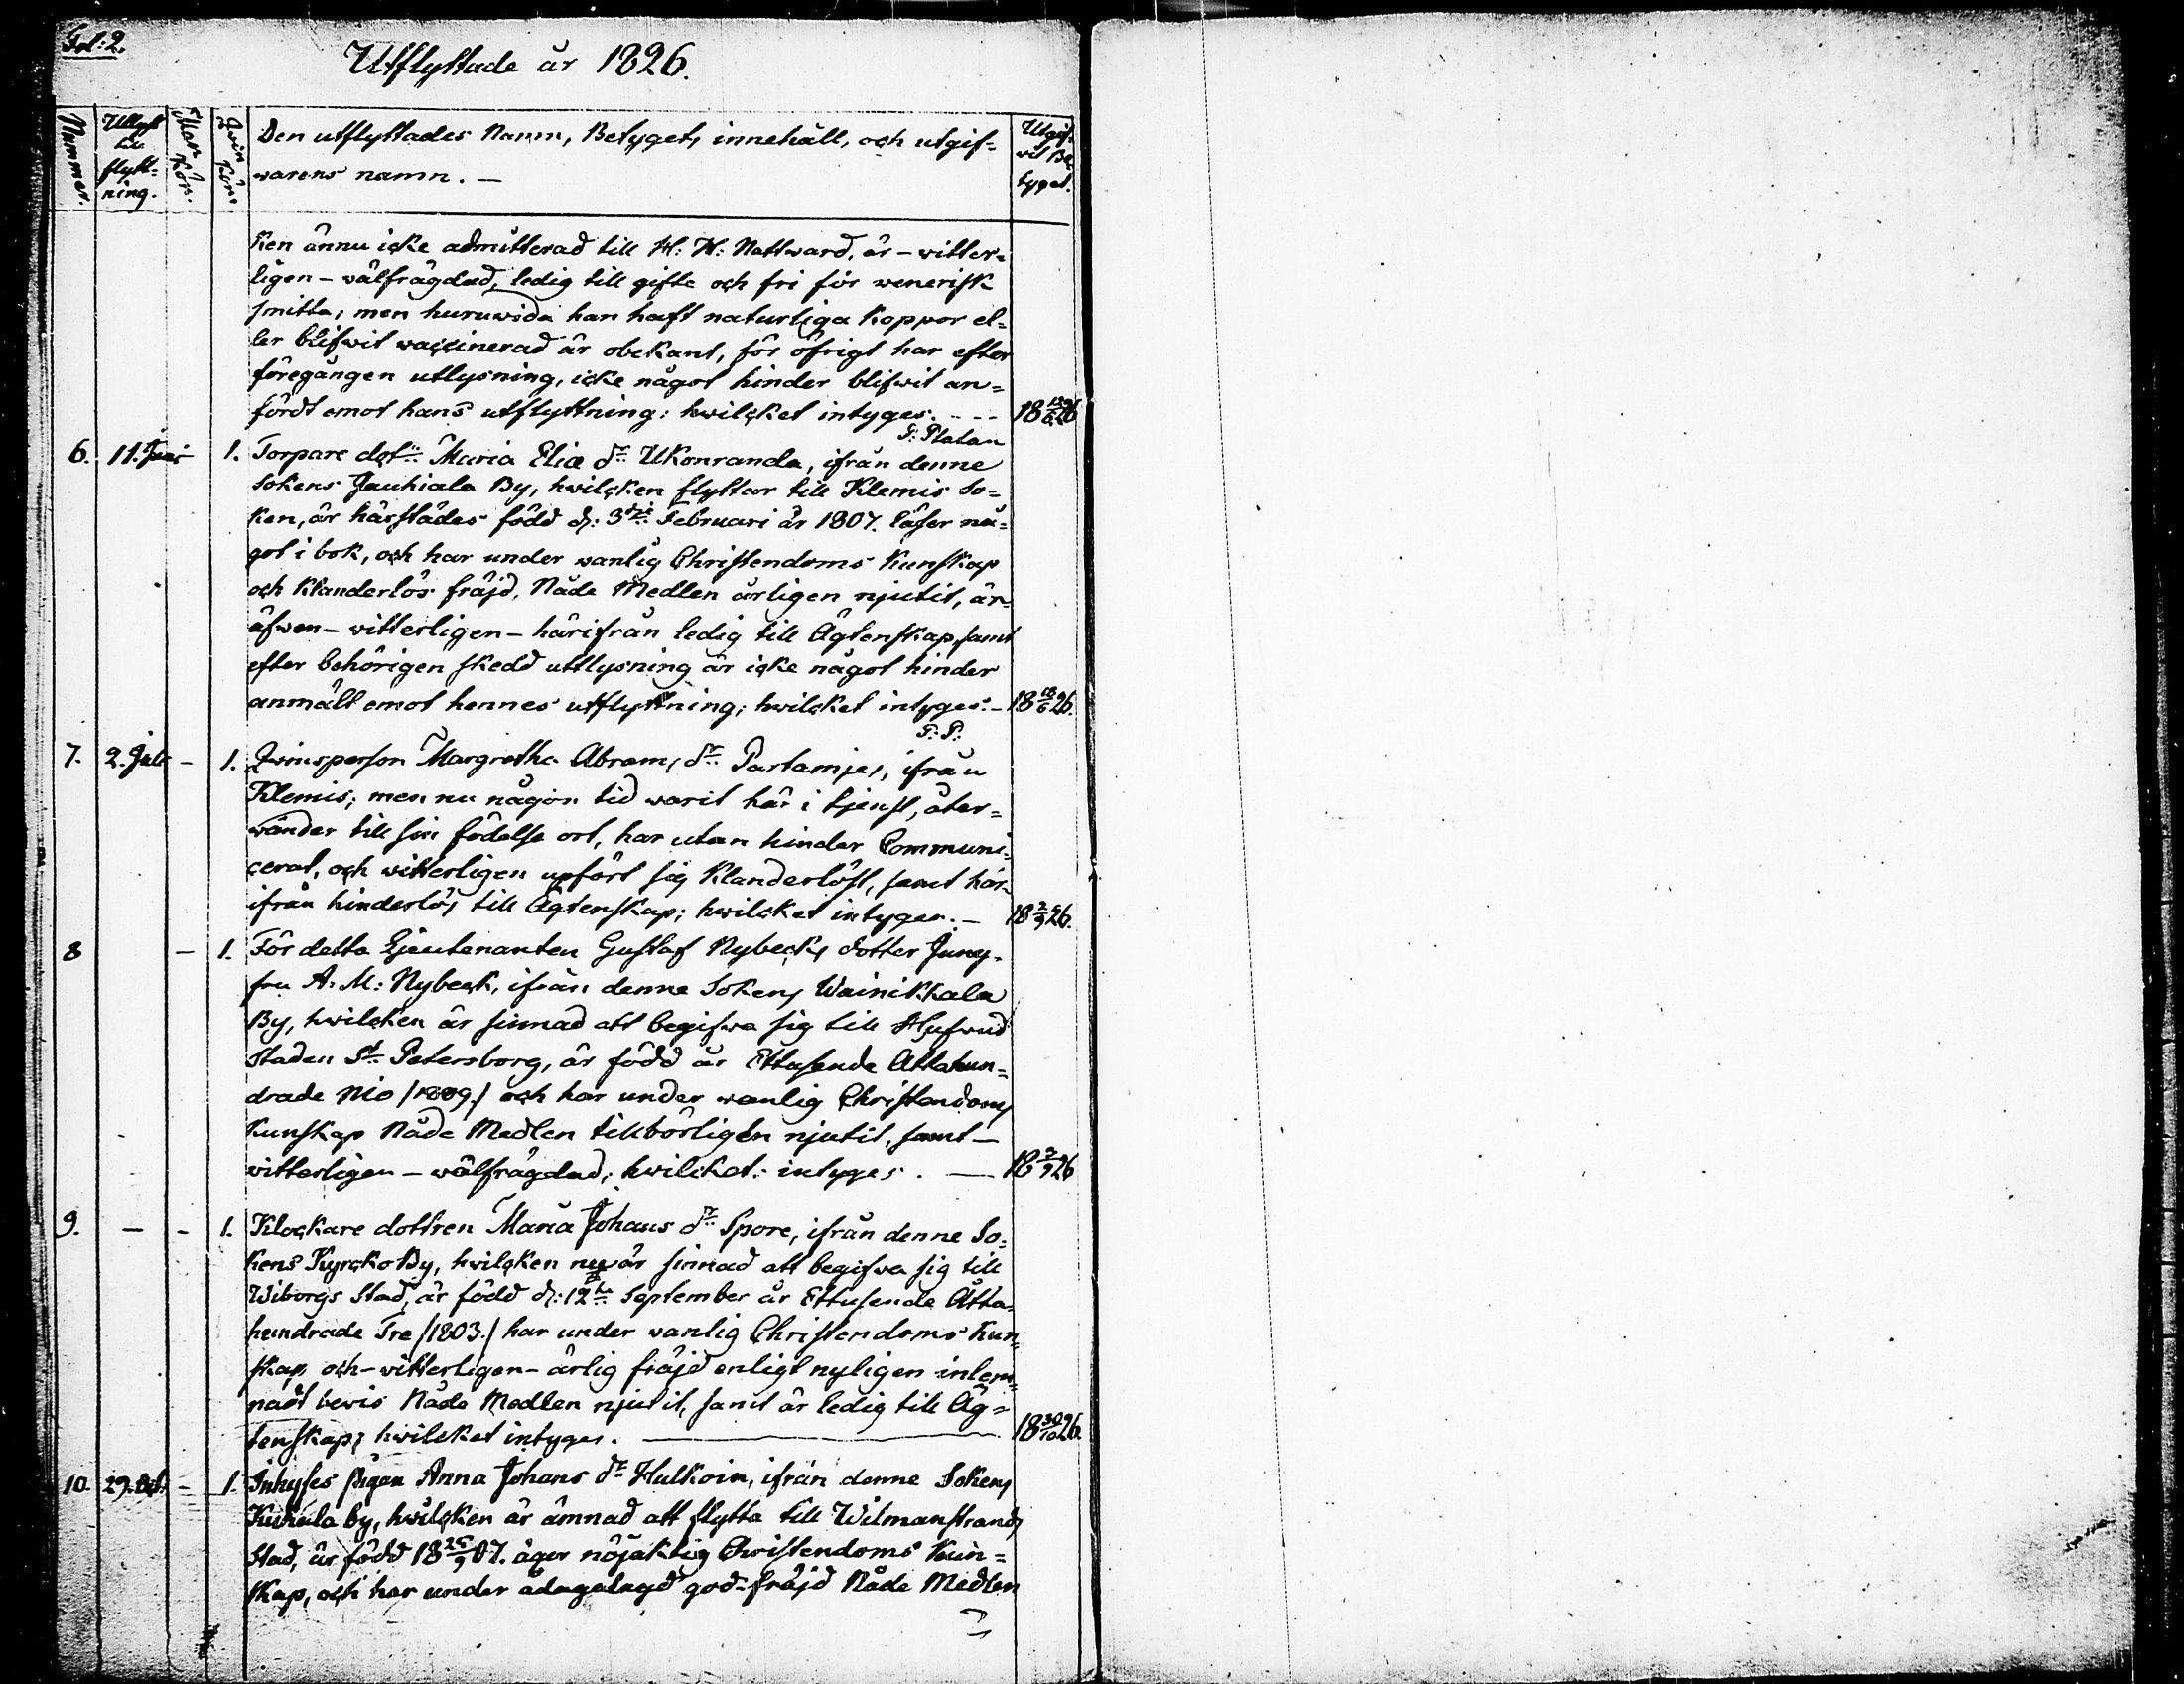 Fol: 2.
Utflyttade år 1826.
Nummer.
Utlyst till flytt=ning.
Man Kön.
Qvin Kön.
Den utflyttades Namn, Betygets innehåll, och utgif=
warens namn. —
Utgif=
vit Be
tyget.
ken ännu icke admitterad till H: H: Nattward, är – witter=
ligen – wälfrägdad, ledig till gifte och fri för venerisk
smitta; men huruwida han haft naturliga Koppor el=
ler blifwit waccinerad är obekant, för öfrigt har efter
föregången utlysning, icke något hinder blifwit an=
fördt emot hans utflyttning: hwilcket intyges. - - - 18 26
P: Platan
6. 11. Juni 1. Torpare dotn: Maria Eliæ dr Ukonranda, ifrån denne
Sokens Jauhiala By, hwilcken flyttar till Klemis So=
ken, är härstädes född d: 3die Februari år 1807. Läser nå=
got i bok, och har under wanlig Christendoms Kunskap
och Klanderlös fräjd, Nåde Medlen årligen njutit, är
äfwen – witterligen – härifrån ledig till Ägtenskap, samt
efter behörigen skedd uttlysning är icke något hinder
anmält emot hennes utflyttning; hwilcket intyges. – 18 18/6 26.
P: P:
7. 2. Juli – 1. Qwinsperson Margretha Abrams dr Partamies, ifrån
Klemis; men nu någon tid warit här i tjenst, åter=
wänder till sin födelse ort, har utan hinder Communi=
cerat, och witterligen upfört sig Klanderlöst, samt här=
ifrån hinderlös till Ägtenskap; hwilcket intyges. – 18 2/9 26.
8 – 1. För detta Lieutenanten Gustaf Nybecks dotter Jung=
fru A: M: Nybeck, ifrån denne Sokens Wainikkala
By, hwilcken är sinnad att begifwa sig till Hufwud
staden St: Petersborg, är född år Ettusende Attahun=
drade Nio /1809./ och har under wanlig Christendoms
Kunskap Nåde Medlen tillbörligen njutit, samt –
witterligen – wälfrägdad; hwilcket intyges. — 18 2/9 26
9. – – 1. Klockare dottren Maria Johans dr Spore, ifrån denne So=
kens Kyrcko By, hwilcken nu är sinnad att begifwa sig till
Wiborgs Stad, är född d: 12te September år Ettusende Åtta=
hundrade Tre /1803./ har under wanlig Christendoms Kun=
skap och – witterligen – ärlig fräjd enligt nyligen inlem=
nadt bewis Nåde Medlen njutit, samt är ledig till Äg=
tenskap; hwilcket intyges. — 18 30/10 26.
10. 29. Oct. – 1. Inhyses pigan Anna Johans dr Hulkoin, ifrån denne Sokens
Kuhula by, hwilcken är ämnad att flytta till Wilmanstrands
Stad, är född 18 26/9 07. äger nöjaktig Christendoms Kun=
skap, och har under ådagalagd god fräjd Nåde Medlen